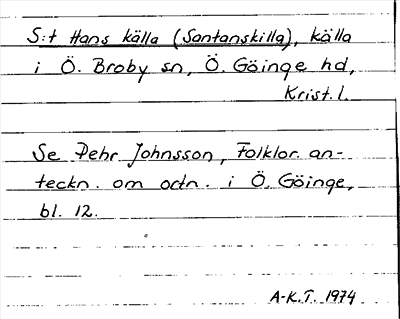 S:t Hans källa (Santanskilla), källa
i Ö. Broby sn, Ö. Göinge hd,
Krist. l.
Se Pehr Johnsson, Folklor. an-
teckn. om ortn. i Ö. Göinge,
bl. 12.
A-K.T. 1974